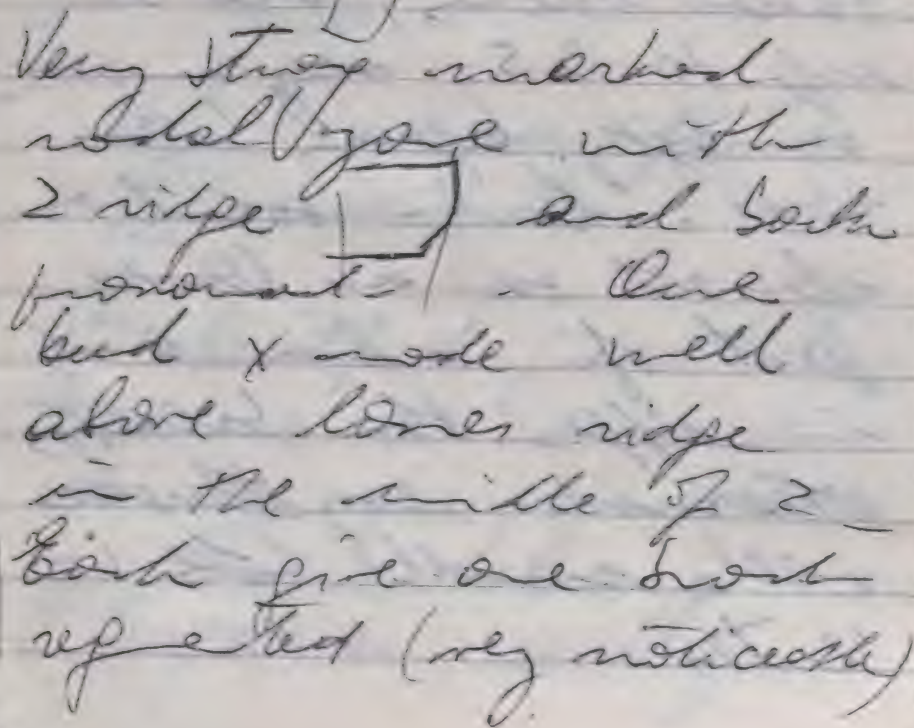 Very strong marked
nodal zone with
2 ridge and both
prononced - One
bud x node well
above lower ridge
in the midle of 2 -
Each give one branch
repeated (very noticeable)